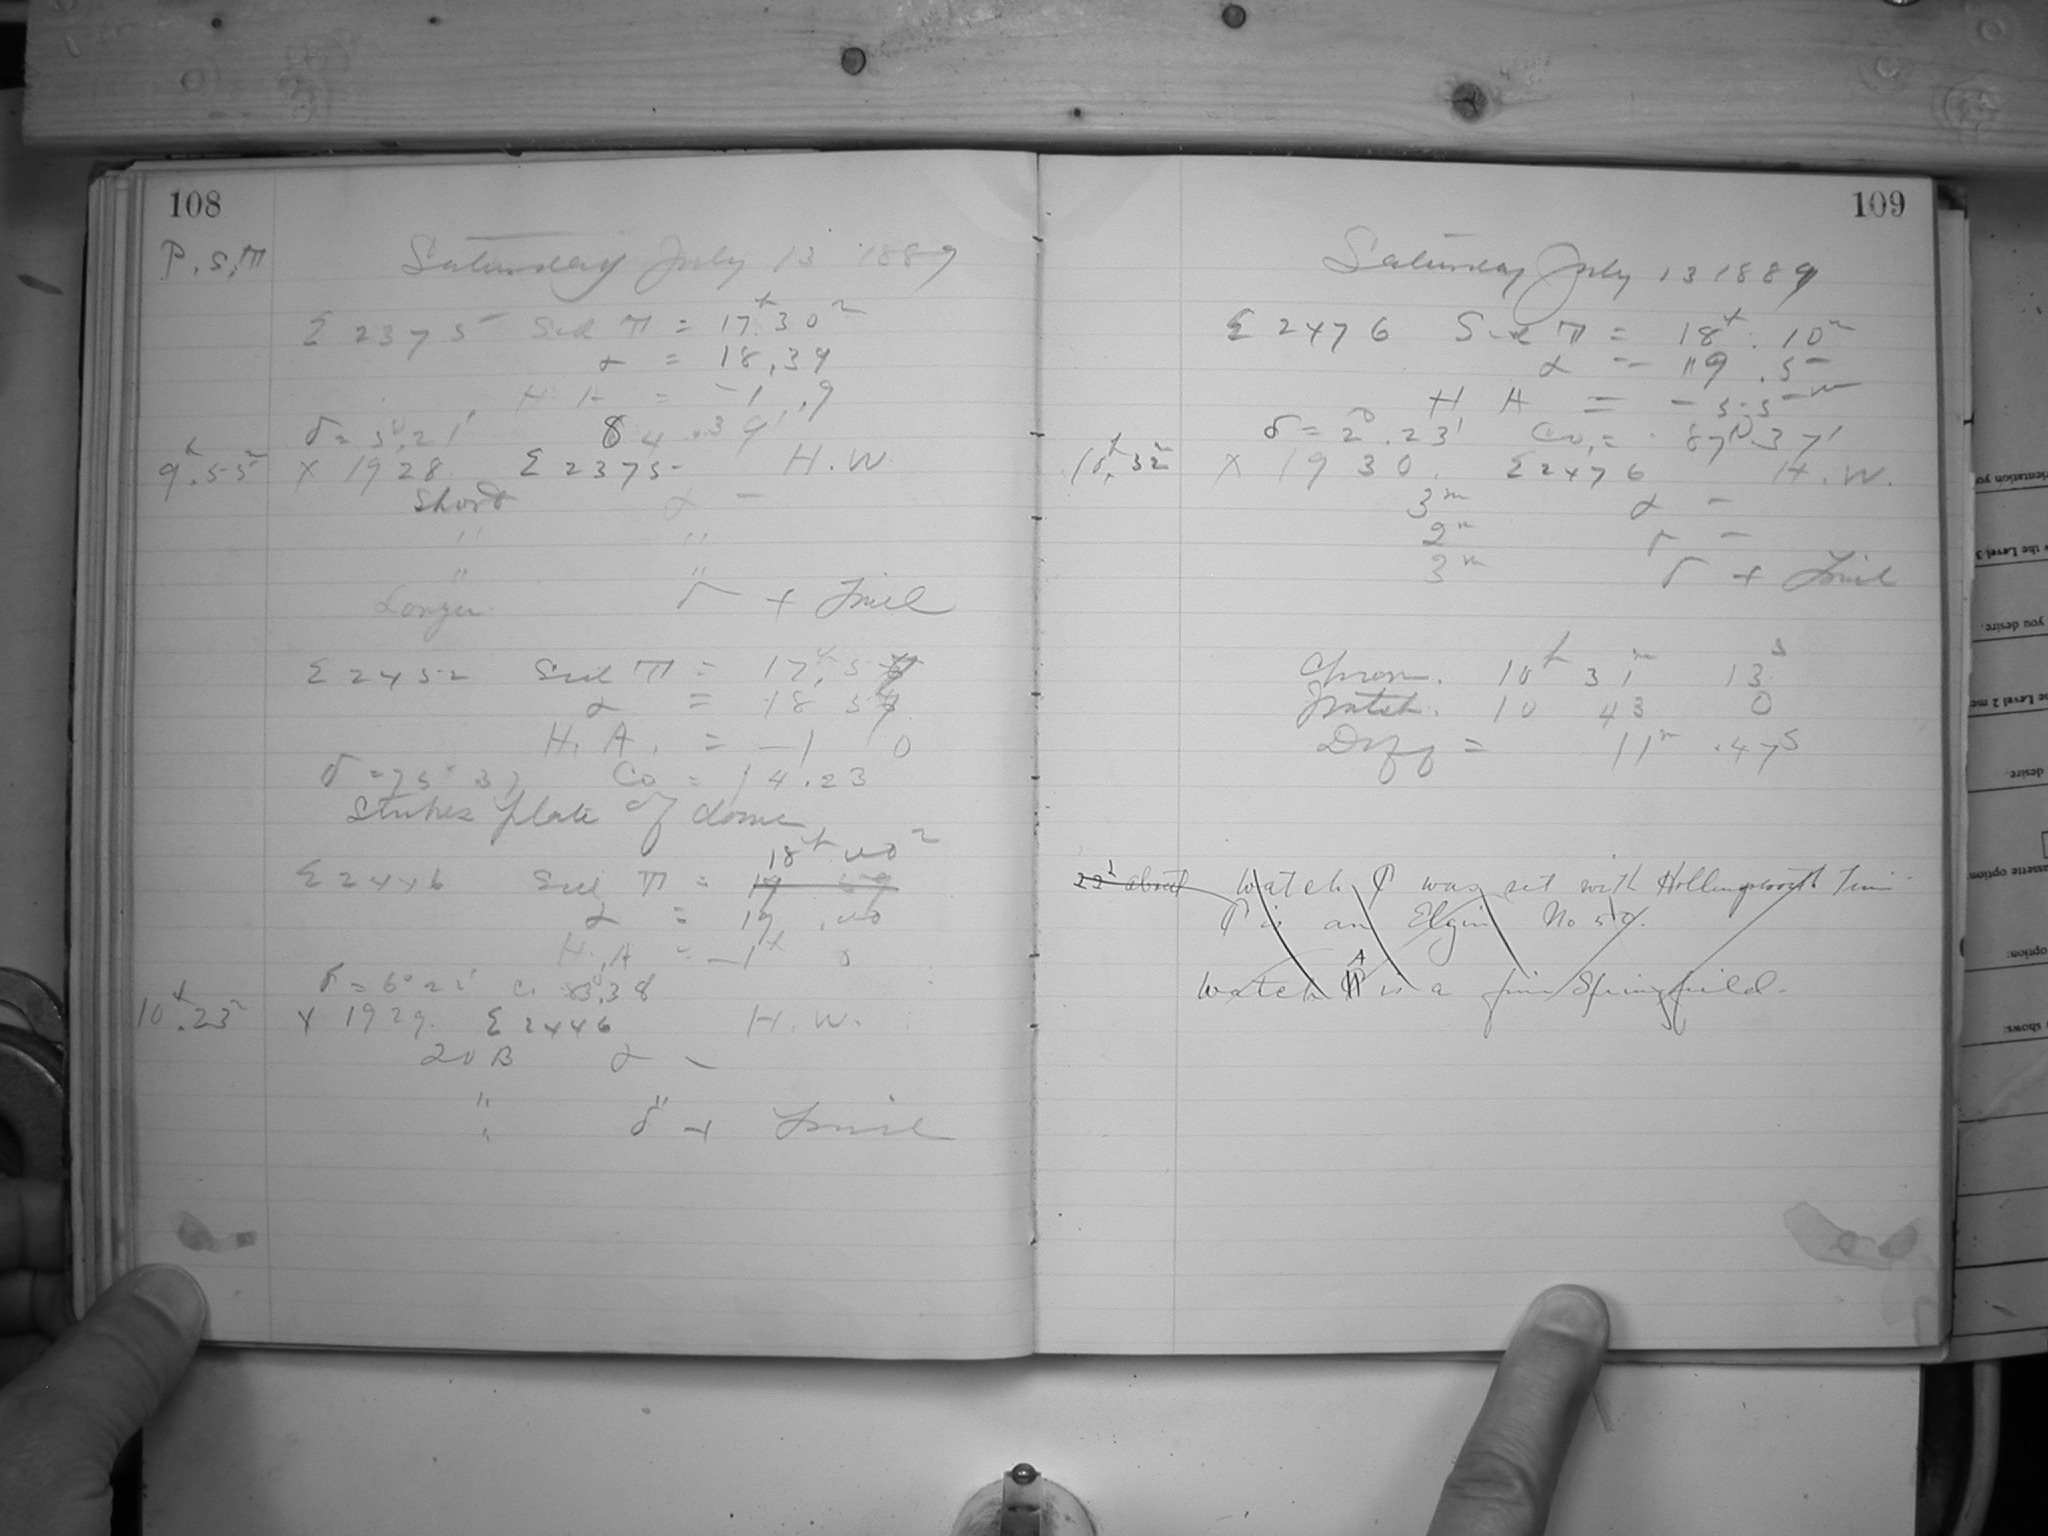 108
P.S.T
Saturday July 13 1889
Σ 2375 Sid T = 17h 30m
α = 18.39
H A = -1.9
δ = 5°.21' 84.39'
9h.55m X 1928. Σ 2375 H.W.
Short α -
" "
" "
Longer δ + Trail
Σ 2452 Sid T = 17h.5
α = 18 5
H. A. = -1 0
δ = 75° 37 Co = 14.23
Strikes plate of dome
18h 00m
Σ 2446 Sid T = 19 59
α = 19.00
H.A = -1h 0
δ = 6° 22' Co 83.38
10h.23m X 1929. Σ 2446 H.W.
20 B α -
" "
" δ + Trail
109
Saturday July 13 1889
Σ 2476 Sid T = 18h. 10m
α = 19.5
H A = - 55m
δ = 2°.23' Co. = 87°.37'
10h.32m X 1930. Σ 2476 H.W.
3m α -
2m δ -
3m δ + Trail
Chron. 10h 31m 13s
Watch. 10 43 0
Diff = 11m .47s
22d about Watch P was set with Hollingsworth Time
P is an Elgin No 50.
Watch A is a fine Springfield.